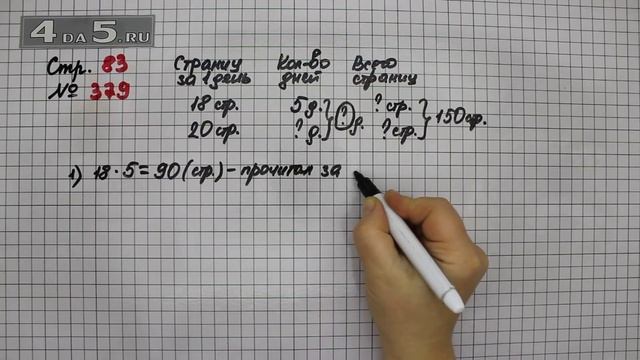 4DA5.RU
Стр. 83
№ 379
Страниц за 1 день
Кол-во дней
Всего страниц
18 стр. 5 д. ? стр.
20 стр. ? д. ? стр.
? д.
150 стр.
1) 18 · 5 = 90 (стр.) – прочитал за